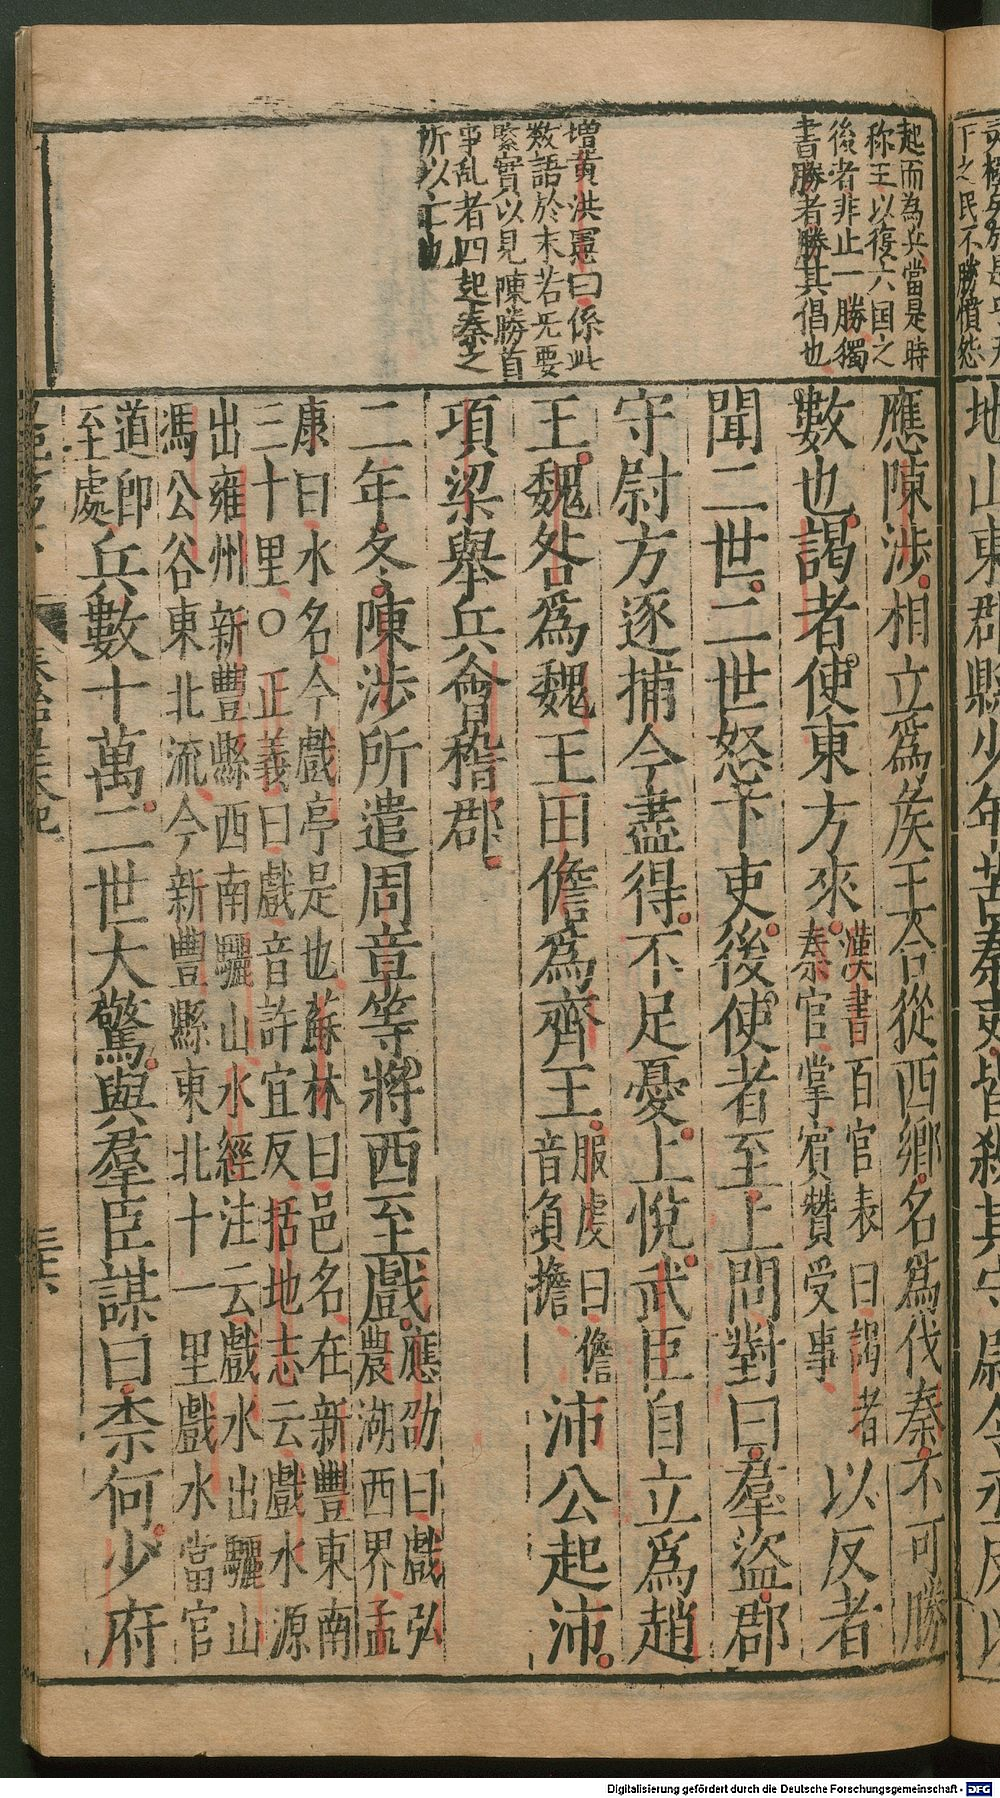 起而為兵當是時
称王以復六国之
後者非止一勝獨
書勝者勝其倡也
増黄洪憲曰係此
数語於末若旡要
緊實以見陳勝首
事乱者四起秦之
所以亡也
應陳涉相立爲侯王合從西鄉名爲伐秦不可勝
數也謁者使東方來漢書百官表曰謁者
秦官掌賓贊受事以反者
聞二世二世怒下吏後使者至上問對曰羣盜郡
守尉方逐捕今盡得不足憂上悅武臣自立爲趙
王魏咎爲魏王田儋爲齊王服虔曰儋
音負擔沛公起沛
項梁舉兵會稽郡
二年冬陳涉所遣周章等將西至戲應劭曰戲弘
農湖西界孟
康曰水名今戲亭是也蘇林曰邑名在新豐東南
三十里○正義曰戲音許宜反括地志云戲水源
出雍州新豐縣西南驪山水經注云戲水出驪山
馮公谷東北流今新豐縣東北十一里戲水當官
道卽
至處兵數十萬二世大驚與羣臣謀曰柰何少府
地山東郡縣少年苦秦吏皆殺其守尉令丞反以
下之民不勝憤怨
Digitalisierung gefördert durch die Deutsche Forschungsgemeinschaft - DFG